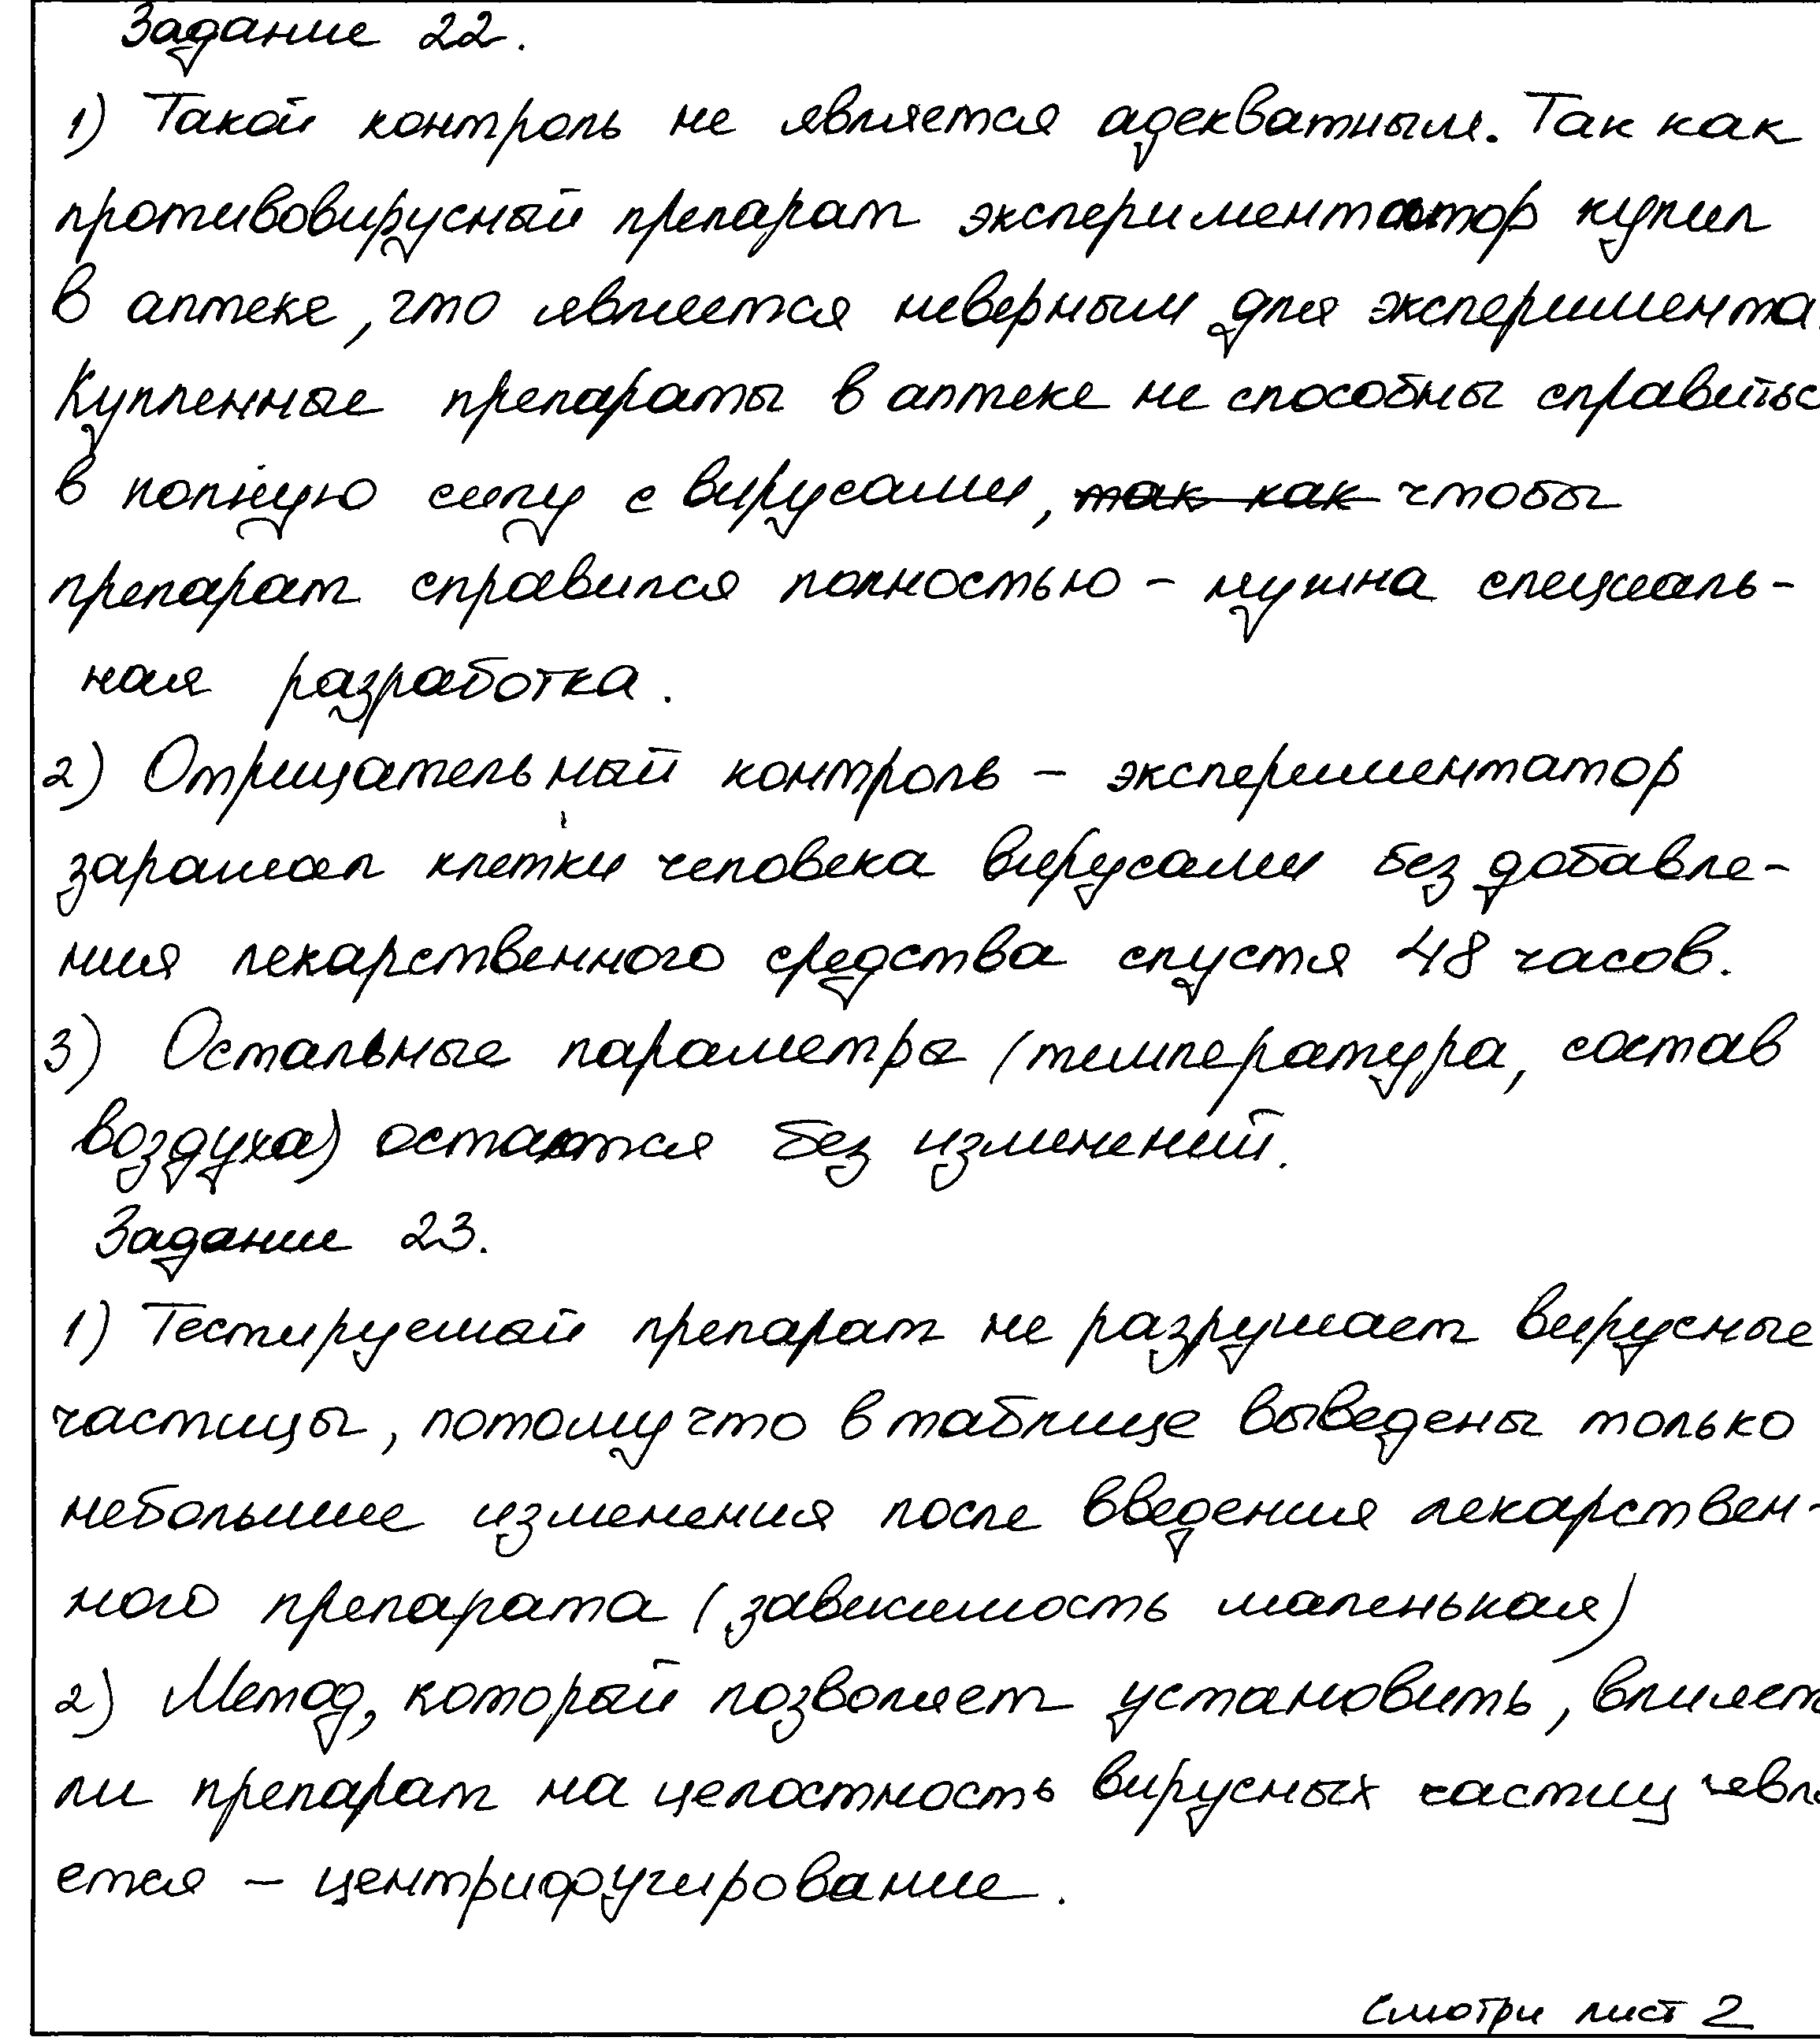 Задание 22.
1) Такой контроль не является адекватным. Так как
противовирусный препарат экспериментатор купил
в аптеке, что является неверным для эксперимента.
Купленные препараты в аптеке не способны справитьс
в полную силу с вирусами, ~~так как~~ чтобы
препарат справился полностью – нужна специаль-
ная разработка.
2) Отрицательный контроль – экспериментатор
заражал клетки человека вирусами без добавле-
ния лекарственного средства спустя 48 часов.
3) Остальные параметры (температура, состав
воздуха) остаются без изменений.
Задание 23.
1) Тестируемый препарат не разрушает вирусные
частицы, потому что в таблице выведены только
небольшие изменения после введения лекарствен-
ного препарата (зависимость маленькая)
2) Метод, который позволяет установить, влияет
ли препарат на целостность вирусных частиц явля
ется – центрифугирование.
Смотри лист 2